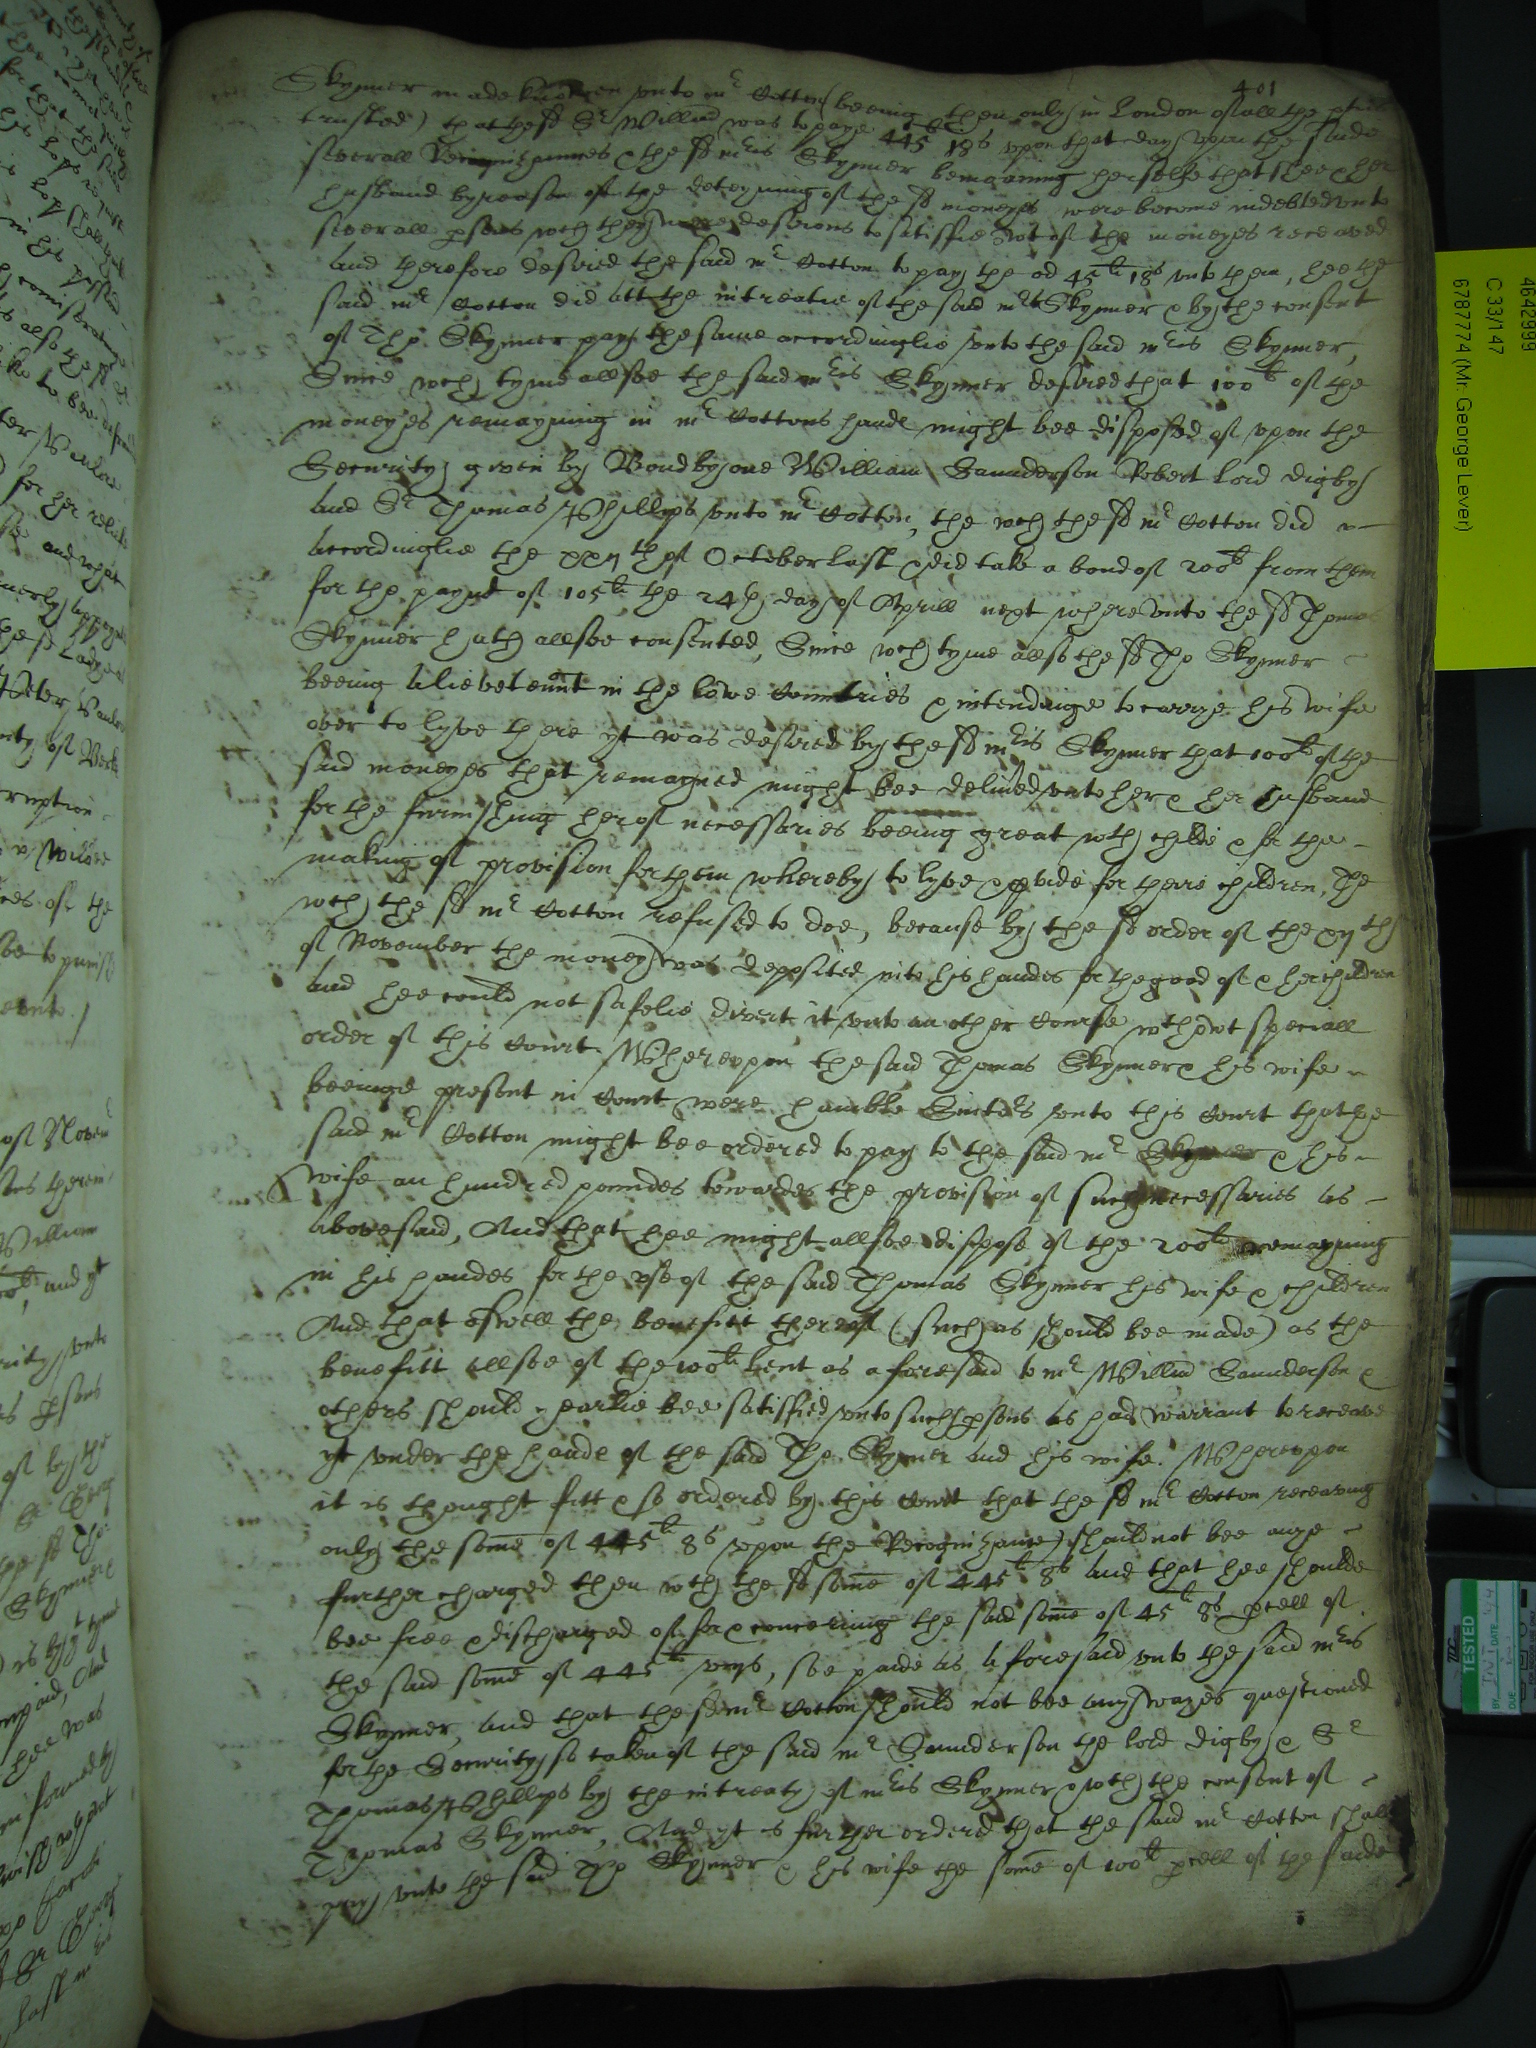 401
Skynner made knowen vnto mr Cotton (beeing then only in London of all the pties
trusted) that the sd Sr Willm was to paye 445li 18s vpon that day vpon the said
severall Recognizances & the sd mris Skynner bemoaning herselfe that shee & her
husband by reason of the deteyning of the sd moneyes were become indebted vnto
severall psons wch they were desirous to satisfie out of the moneyes receaved
And therefore desired the said mr Cotton to pay the od 45li 18s vnto them, hee the
said mr Cotton did att the intreatie of the said mris Skynner & by the consent
of Tho. Skynner pay the same accordinglie vnto the said mris Skynner,
Since wch tyme allsoe the said mris Skynner desired that 100li of the
moneyes remayning in mr Cottons hande might bee disposed of vpon the
Security given by Bond by one William Saunderson Robert Lord Digby
and Sr Thomas Phillips vnto mr Cotton, the wch the sd mr Cotton did
accordinglie the xxijth of October last & did take a bond of 200li from them
for the paymt of 105li the 24th day of Aprill next wherevnto the sd Thomas
Skynner hath allsoe consented, Since wch tyme allso the sd Tho Skynner
beeing a lievetennt in the Lowe Countries & intendinge to carrye his wife
over to lyve there yt was desired by the sd mris Skynner that 100li of the
said moneyes that remayned might bee delivred vnto her & her husband
for the furnishing her of necessaries beeing great wth childe & for the
making of provision for them whereby to lyve & pvide for theire children, The
wch the sd mr Cotton refused to doe, because by the sd order of the xijth
of November the money was deposited into his handes for the good of & her children
and hee could not safelie divert it vnto an other Course wthowt speciall
order of this Court. Wherevpon the said Thomas Skynner & his wife
beeinge present in Court were humble Suitors vnto this Court that the
said mr Cotton might bee ordered to pay to the said mr Skynner & his
wife an hundred poundes towardes the provision of such necessaries as
abovesaid, And that hee might allsoe dispose of the 200li remayning
in his handes for the vse of the said Thomas Skynner his wife & children
And that aswell the benefitt thereof (such as should bee made) as the
benefitt allsoe of the 100li lent as aforesaid to mr Willm Saunderson &
others should yearlie bee satisfied vnto such psons as had warrant to receave
yt vnder the hande of the said Tho. Skynner and his wife. Wherevpon
it is thought fitt & so ordered by this Court that the sd mr Cotton receaving
only the some of 445li 8s vpon the Recognizances should not bee anye
further charged then wth the sd some of 445li 8s and that hee shoulde
bee free & discharged of for & concerning the said some of 45li 8s pcell of
the said some of 445li viijs, soe paide as aforesaid vnto the said mris
Skynner, and that the sd mr Cotton should not bee any wayes questioned
for the Security so taken of the said mr Saunderson the lord Digby & Sr
Thomas Phillips by the intreaty of mris Skynner & wth the consent of
Thomas Skynner, And yt is further ordered that the said mr Cotton shall
pay vnto the said Tho Skynner & his wife the some of 100li pcell of the saide
4642999
C 33/147
6787774 (Mr. George Lever)
TESTED